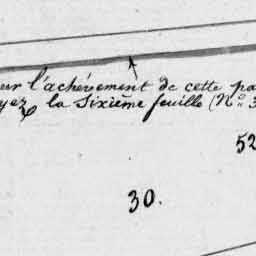 ur l'achévement de cette pa
yez la Sixième feuille (No. 3
52
30.